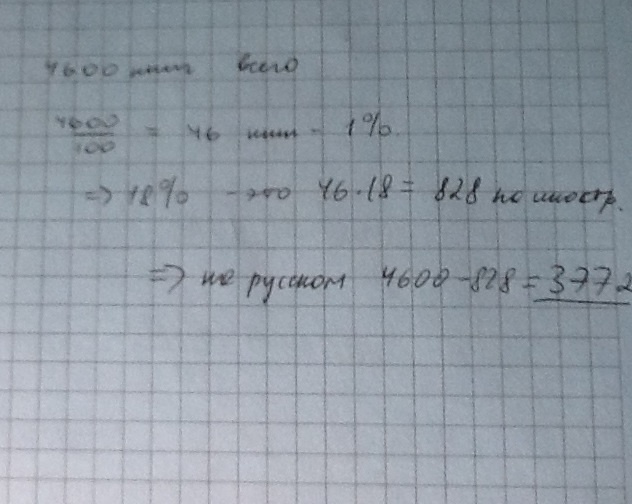 4600 книг всего
4600/100 = 46 книг - 1%.
=> 18% - это 46·18 = 828 на иностр.
=> на русском 4600-828=3772